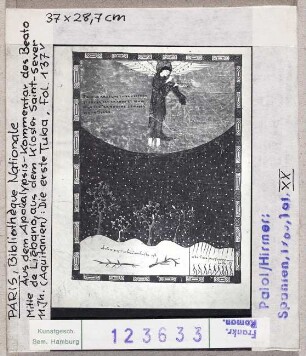 37 x 28,7 cm
PARIS, Bibliothèque Nationale
Aus dem Apokalypsis-Kommentar des Beato
de Liébana, aus dem Kloster Saint-Sever
Mitte 11. Jh. (Aquitanien): Die erste Tuba, Fol. 137v
Palol/Hirmer:
Spanien,
XX
Kunstgesch.
Sem. Hamburg
123633
Frankr.
Roman.